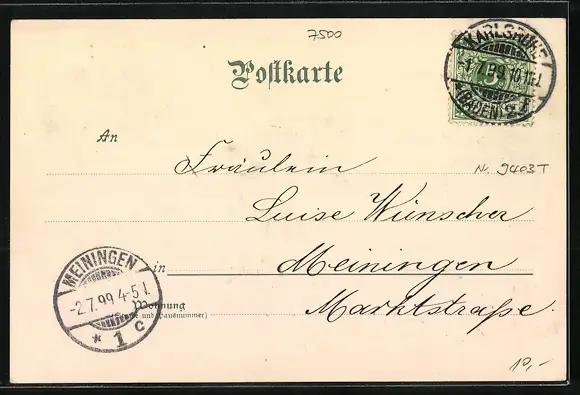 7500
Postkarte
KARLSRUHE
-1.7.99.10-11V.
(BADEN)
An
Fräulein
N. 9403T
Luise Wünscher
in Meiningen
Marktstraße.
MEININGEN
-2.7.99.4-5V.
* 1 c
Wohnung
(Straße und Hausnummer)
10,-